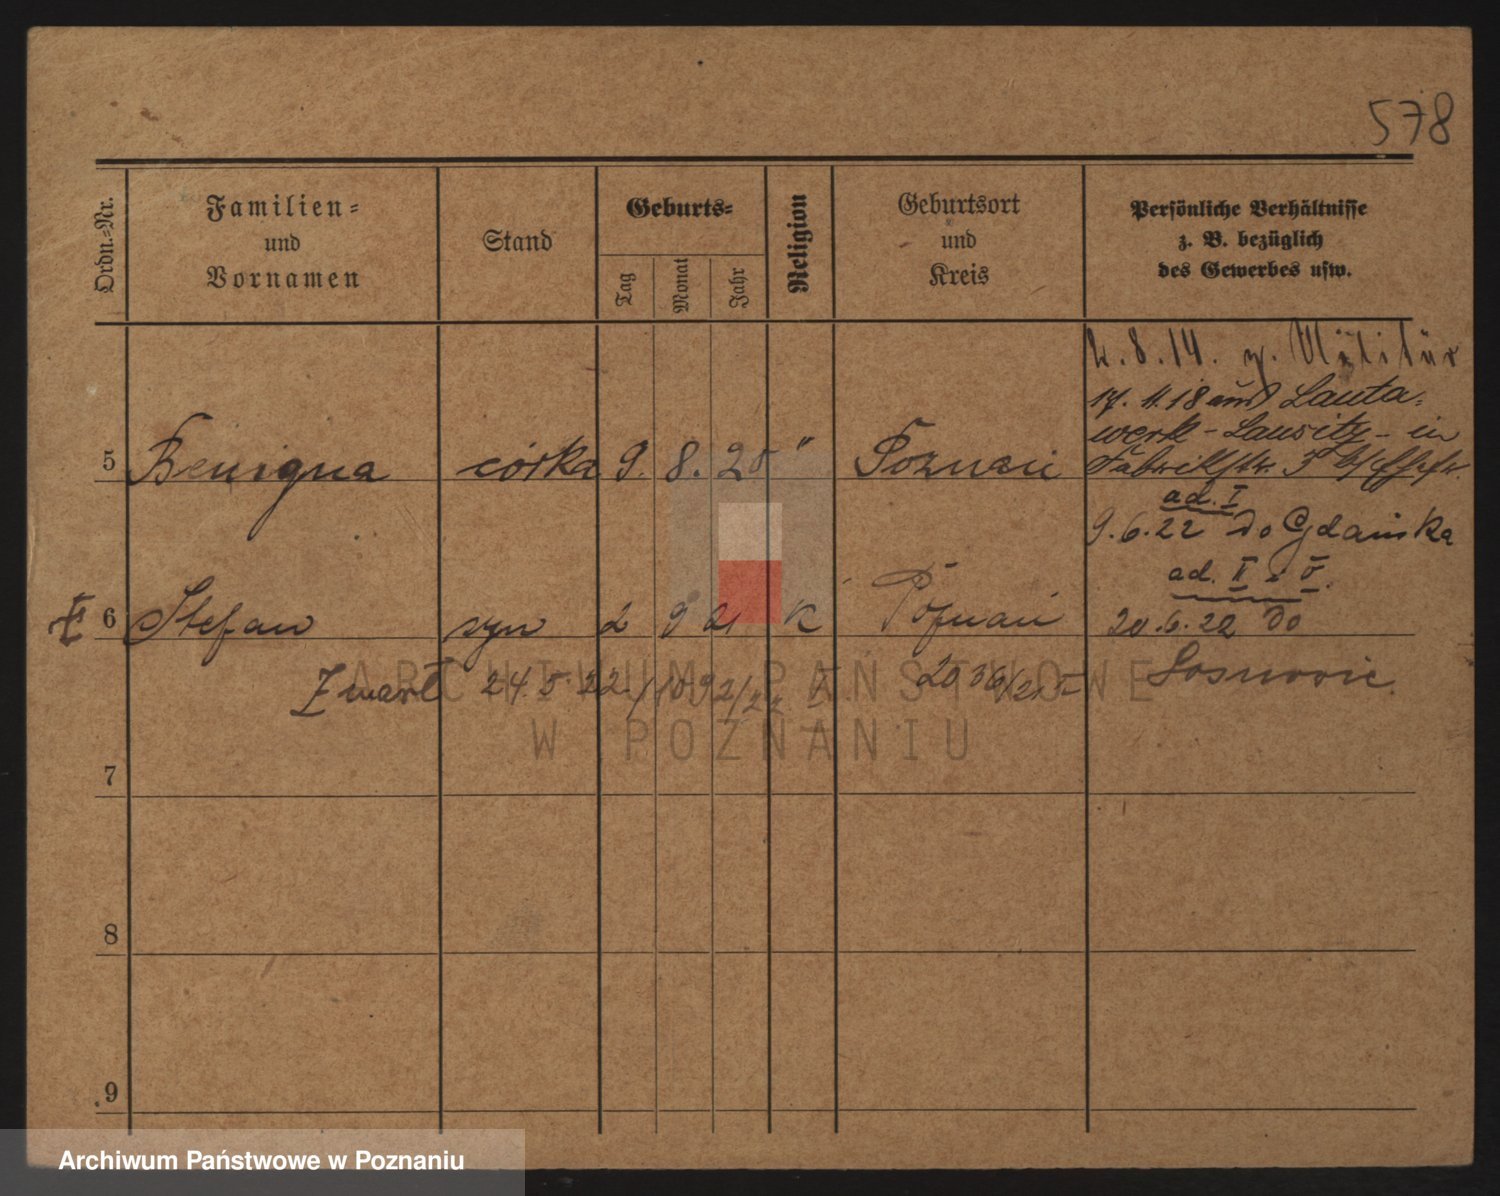 578
Ordn.-Nr.
Familien-
und
Vornamen
Stand
Geburts-
Tag
Monat
Jahr
Religion
Geburtsort
und
Kreis
Persönliche Verhältnisse
z. B. bezüglich
des Gewerbes usw.
8.14. z. Militär
17. 11. 18 Lauta-
werk - Lausitz - in
Fabrikstr. 5
5 Benigna córka 9. 8. 20 " Poznań
ad. I
9.6.22 do Gdańska
ad. II - V.
6 Stefan syn 2 9 21 K Poznań
20.6.22 do
Sosnowic.
Zmarł 24.5.22
7
8
9
ARCHIWUM PAŃSTWOWE
W POZNANIU
Archiwum Państwowe w Poznaniu